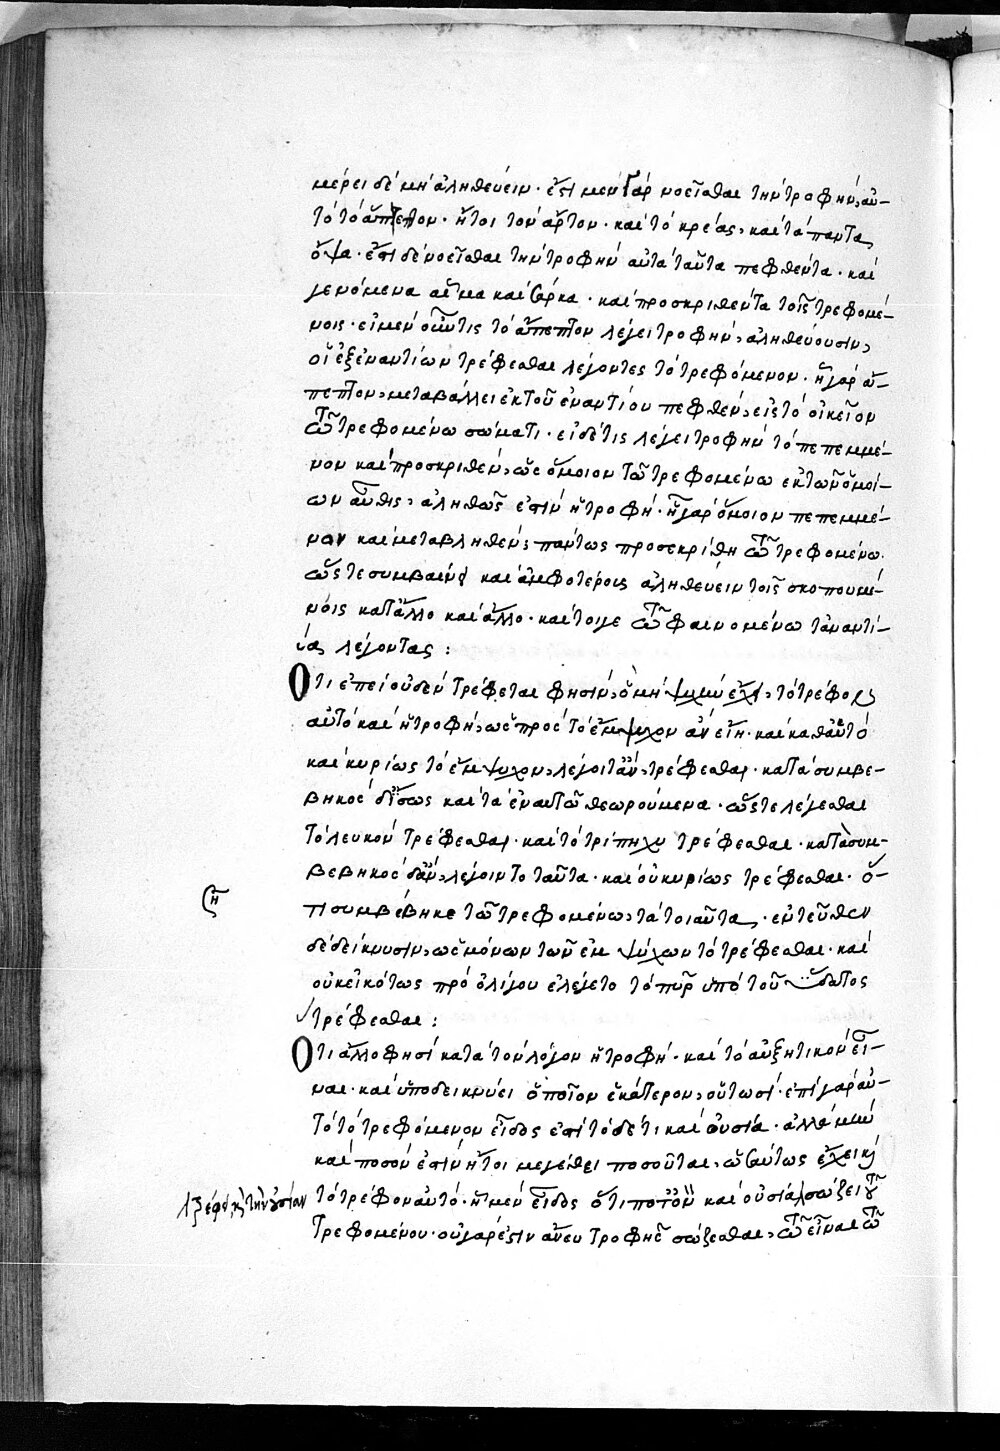 μέρει δὲ μὴ ἀληθεύειν· ἔστι μὲν γὰρ νοεῖσθαι τὴν τροφὴν, αὐ-
τὸ τὸ ἄπεπτον· ἤτοι τὸν ἄρτον· καὶ τὸ κρέας, καὶ τὰ πάντα
ὄψα· ἔστι δὲ νοεῖσθαι τὴν τροφὴν αὐτὰ ταῦτα πεφθέντα· καὶ
γενόμενα αἷμα καὶ σάρκα· καὶ προσκριθέντα τοῖς τρεφομέ-
νοις· εἰ μὲν οὖν τις τὸ ἄπεπτον λέγει τροφὴν, ἀληθεύουσιν,
οἱ ἐξ ἐναντίων τρέφεσθαι λέγοντες τὸ τρεφόμενον· ἡ γὰρ ἄ-
πεπτον, μεταβάλλει ἐκ τοῦ ἐναντίου πεφθὲν, εἰς τὸ οἰκεῖον
τῶ τρεφομένω σώματι· εἰ δέ τις λέγει τροφὴν τὸ πεπεμμέ-
νον καὶ προσκριθὲν, ὡς ὅμοιον τῶ τρεφομένω ἐκ τῶν ὁμοί-
ων αὖθις, ἀληθῶς ἐστὶν ἡ τροφή· ἡ γὰρ ὅμοιον πεπεμμέ-
νον καὶ μεταβληθὲν, πάντως προσεκρίθη τῶ τρεφομένω·
ὥστε συμβαίνει καὶ ἀμφοτέρους ἀληθεύειν τοῖς σκοπουμέ-
νοις κατ' ἄλλο καὶ ἄλλο· καίτοιγε τῶ φαινομένω τἀναντί-
α λέγοντας:
Ὅτι ἐπεὶ οὐδὲν τρέφεται φησὶν, ὃ μὴ ψυχὴν ἔχει, τὸ τρέφον
αὐτὸ καὶ ἡ τροφὴ, ὡς πρὸς τὸ ἔμψυχον ἂν εἴη· καὶ καθ' αὑτὸ
καὶ κυρίως τὸ ἔμψυχον, λέγοιτ' ἂν, τρέφεσθαι· κατὰ συμβε-
βηκὸς δ' ἴσως καὶ τὰ ἐν αυτῶ θεωρούμενα· ὥστε λέγεσθαι
τὸ λευκὸν τρέφεσθαι· καὶ τὸ τρίπηχυ τρέφεσθαι· κατὰ συμ-
βεβηκὸς δ' ἂν, λέγοιντο ταῦτα· καὶ οὐ κυρίως τρέφεσθαι· ὅ-
τι συμβέβηκε τῶ τρεφομένω, τὰ τοιαῦτα· ἐντεῦθεν
δὲ δείκνυσιν, ὡς μόνων τῶν ἐμψύχων τὸ τρέφεσθαι· καὶ
οὐκ εἰκότως πρὸ ὀλίγου ἐλέγετο τὸ πῦρ ὑπὸ τοῦ ὕδατος
τρέφεσθαι:
Ὅτι ἄλλο φησὶ κατὰ τὸν λόγον ἡ τροφή· καὶ τὸ αὐξητικὸν εἶ-
ναι· καὶ ὑποδεικνύει ὁποῖον ἑκάτερον, οὑτωσί· ἐπεὶ γὰρ αὐ-
τὸ τὸ τρεφόμενον εἶδος ἐστὶ τόδε τι καὶ οὐσία· ἀλλὰ μὴν
καὶ ποσόν ἐστιν ἤτοι μεγέθει ποσοῦται, ὡσαύτως ἔχει κ(αὶ)
τὸ τρέφον αὐτό· ἡ μὲν εἶδος ὅτι ποτοῦν καὶ οὐσία, σώζει τοῦ
τρεφομένου· οὐ γὰρ ἔστιν ἄνευ τροφῆς σώζεσθαι, τῶ εἶναι τῶ